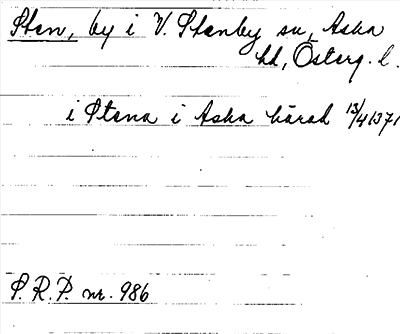 Sten, by i V. Stenby sn, Aska
hd, Österg. l.
i Stena i Aska härad 13/4 1371
S. R. P. nr. 986